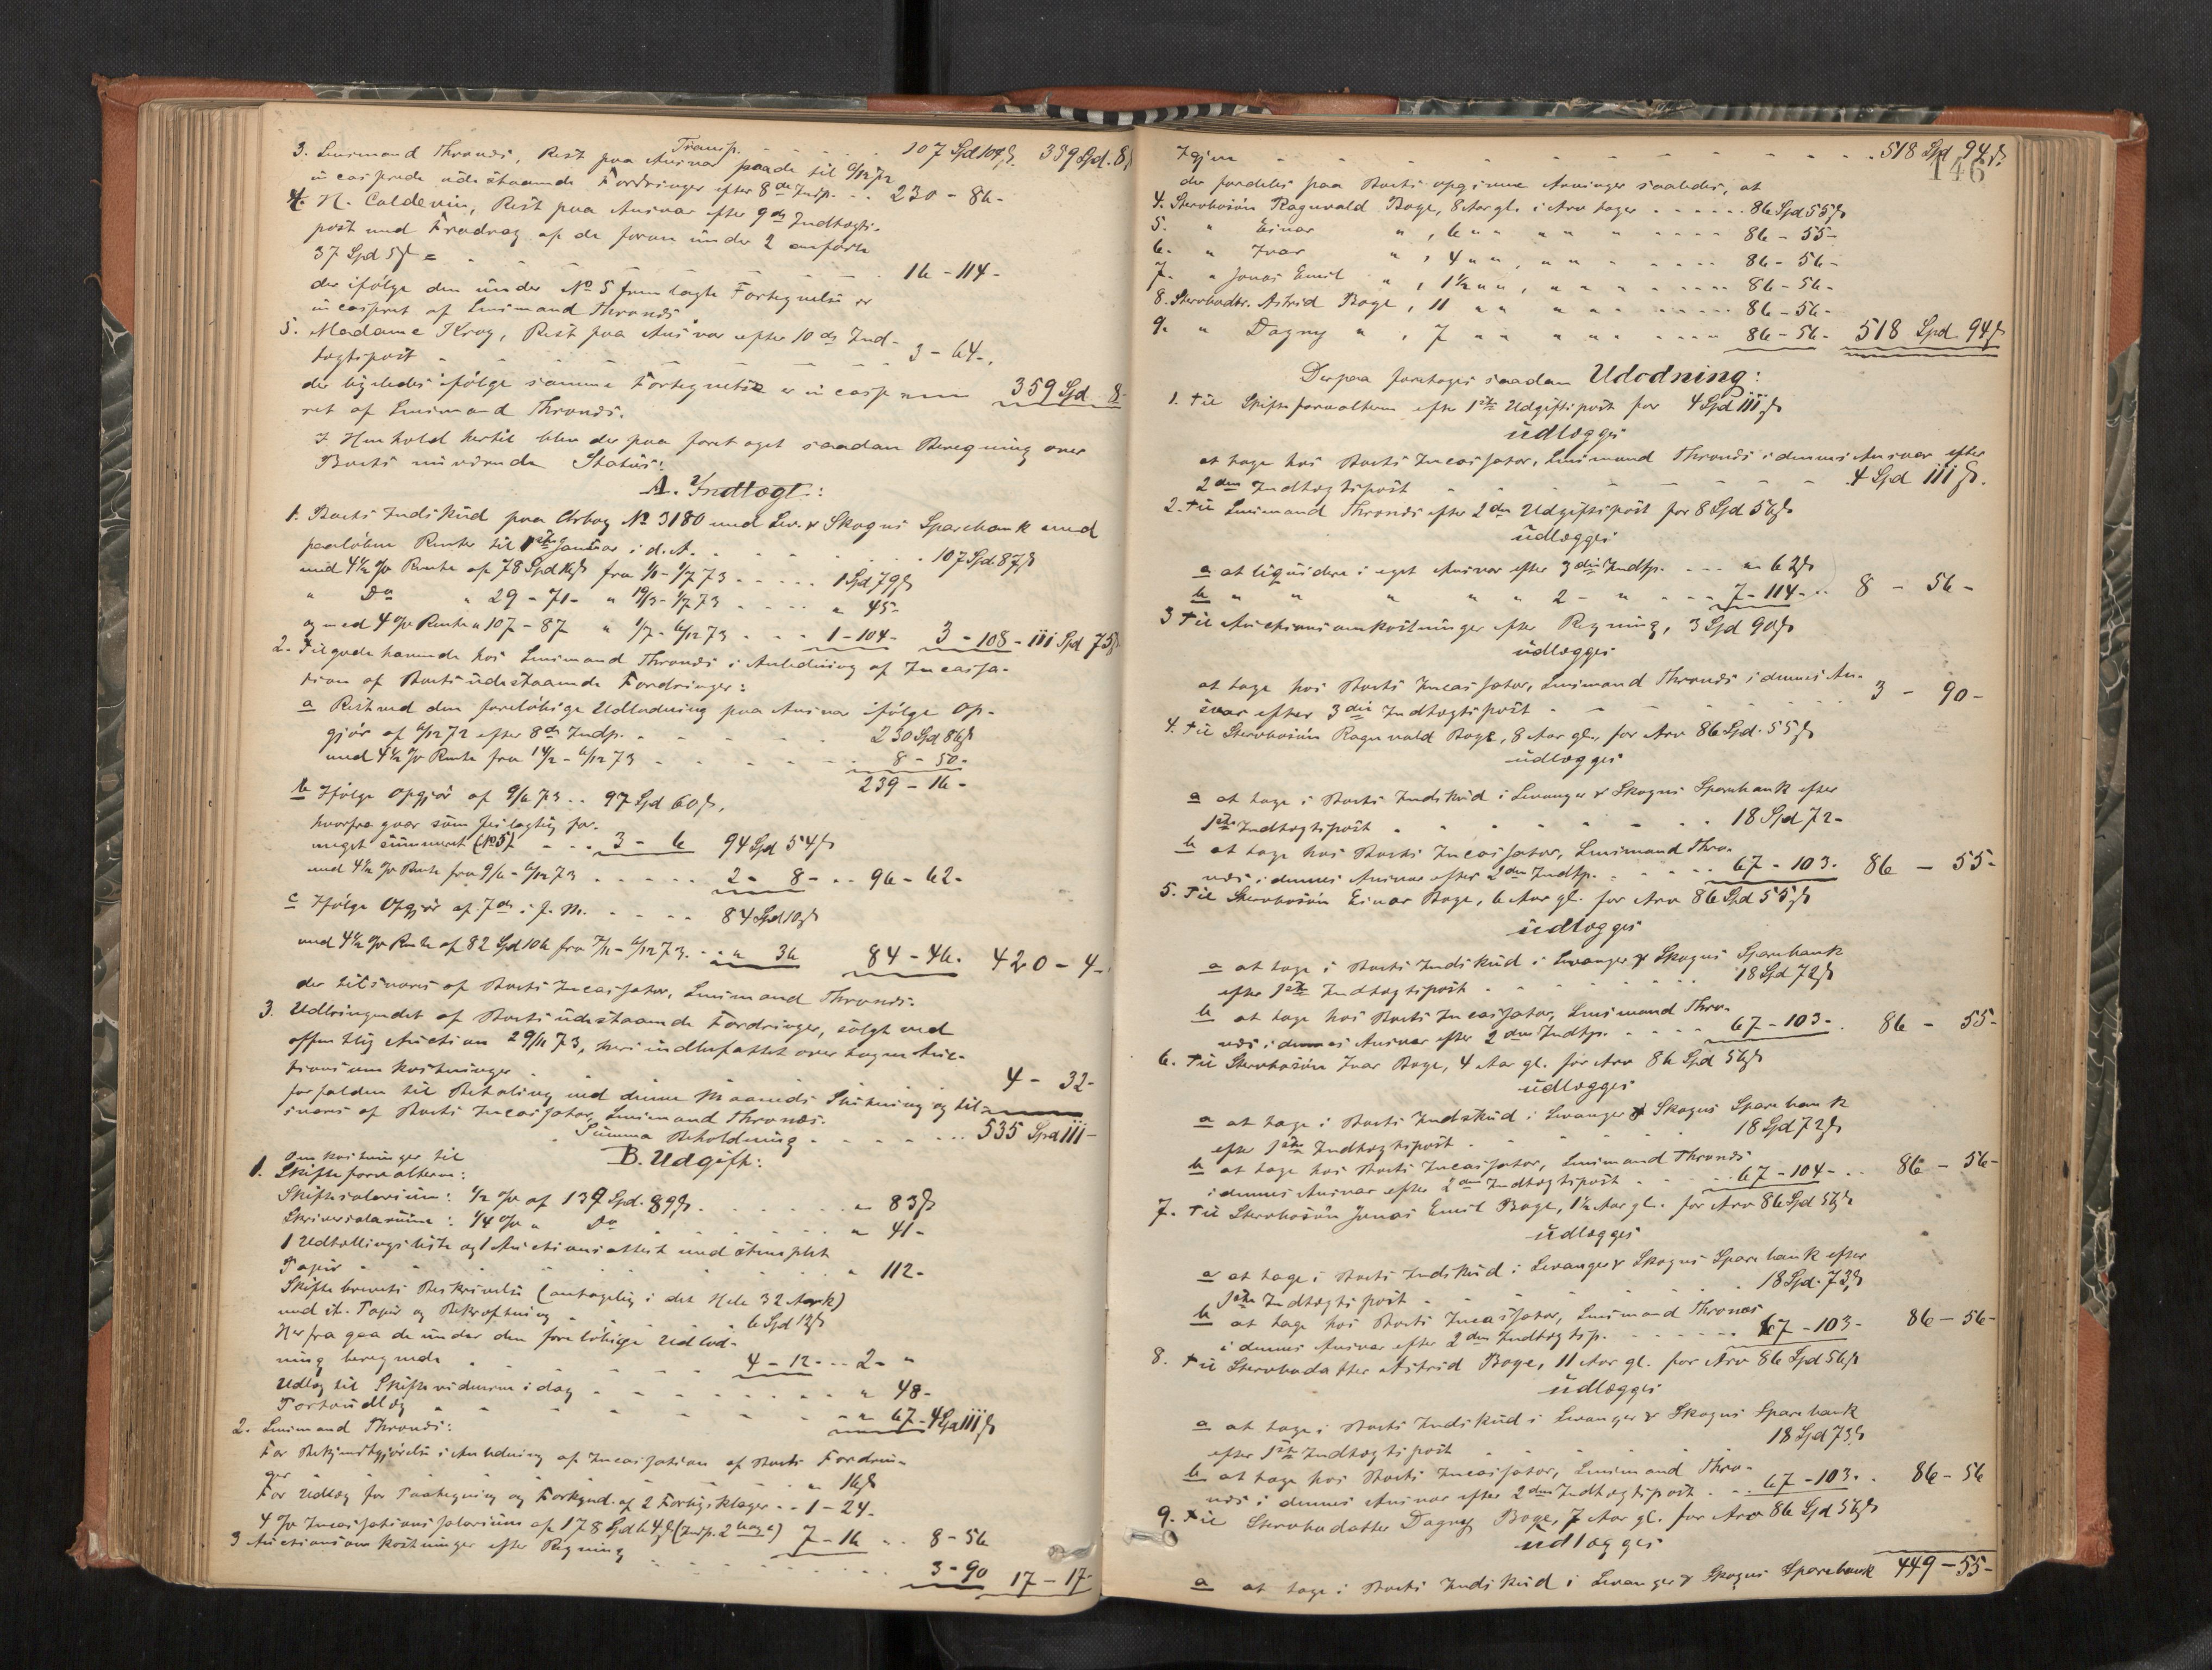 Transp. . . . . 107 Spd 104ß 339 Spd. 8ß
3. Lensmand Thronæs, Rest paa Ansvar paade til 6/12 72
incasserede udestaaende Fordringer efter 8de Indp. . . 230 - 86 -
4. N. Coldevin, Rest paa Ansvar efter 9de Indtægts-
post med Fradrag af de foran under 2 anførte
37 Spd 5ß = . . . . 16 - 114 -
der ifølge den under No 5 fremlagte Fortegnelse er
incasseret af Lensmand Thronæs.
5. Madame Krog, Rest paa Ansvar efter 10de Ind-
tægtspost - - - 3 - 64 -,
der ligeledes ifølge samme Fortegnelse er incasse-
359 Spd 8 -
ret af Lensmand Thronæs.
I Henhold hertil blev derpaa foretaget saadan Beregning over
Boets nuværende Status:
A. Indtægt:
1. Boets Indskud paa Arbog No 3180 med Lev. & Skognes Sparebank med
paaløbne Renter til 1ste Januar i d. A. . . . 107 Spd. 87ß
med 4½ % Rente af 78 Spd 16ß fra 1/1 - 1/7 73 . . . . 1 Spd 79ß
" Do " 29 - 71 - " 19/3 - 1/7 73 . . . . " 45 -
og med 4 % Rente " 107 - 87 " 1/7 - 6/12 73 . . . 1 - 104 - 3 - 108 - 111 Spd 75ß
2. Tilgodehavende hos Lensmand Thronæs i Anledning af Incassa-
tion af Boets udestaaende Fordringer:
a Rest ved den foreløbige Udlodning paa Ansvar ifølge Op-
gjør af 6/12 72 efter 8de Indp. . . . 230 Spd 86ß
med 4½ % Rente fra 14/2 - 6/12 73 - - - 8 - 50 -
239 - 16 -
b Ifølge Opgjør af 9/6 73 . . 97 Spd 60ß,
hvorfra gaar som feilagtig for-
meget summeret (No 5) . . . 3 - 6 94 Spd 54ß
med 4½ % Rente fra 9/6 - 6/12 73 . . . . . 2 - 8 - . . 96 - 62 -
c Ifølge Opgjør af 7de i f. M. . . . . 84 Spd 10ß
med 4½ % Rente af 82 Spd 106 fra 7/11 - 6/12 73 . . . " 36 84 - 46 - 420 - 4 -
der tilsvares af Boets Incassator, Lensmand Thronæs.
3. Udbringendet af Boets udestaaende Fordringer, solgt ved
offentlig Auction 29/11 73, heri indbefattet overtagne Auc-
tionsomkostninger . 4 - 32 -
forfalden til Betaling ved denne Maaneds Slutning og til-
svares af Boets Incassator, Lensmand Thronæs.
Summa Beholdning - - - . . 535 Spd 111 -
B. Udgift:
Omkostninger til
1. Skifteforvalteren:
Skiftesalarium: ½ % af 137 Spd. 89ß . . . . " 83ß
Skriversalarium: ¼ % " Do . . . . " 41 -
1 Udtællingsliste og 1 Auctionsattest med stemplet
Papir " . . . . " 112 -
Skiftebrevets Beskrivelse (antagelig i det Hele 32 Ark)
med st. Papir og Bekræftning . . . 6 Spd 12ß
Herfra gaa de under den foreløbige Udlod-
ning beregnede . . . 4 - 12 - . . 2 - "
Udlæg til Skiftevidnerne i dag . . . . . " 48 -
Portoudlæg - - - - " 67 - 4 Spd 111ß
2. Lensmand Thronæs:
For Bekjendtgjørelse i Anledning af Incassation af Boets Fordrin-
ger - - - " 16ß
For Udlæg for Paategning og Forkynd. af 2 Forligsklager . . 1 - 24 -
4 % Incassationssalarium af 178 Spd 64ß (Indp. 2 b og c) 7 - 16 . . 8 - 56
3 Auctionsomkostninger efter Regning - - - . . . 3 - 90 17 - 17 -
146
Igjen - - - - - . . 518 Spd 94ß
der fordeles paa Boets opgivne Arvinger saaledes, at
4. Stervbosøn Ragnvald Boye, 8 Aar gl. i Arv tager . . . . . 86 Spd 55ß
5. " Einar " , 6 " " " " " . . . . 86 - 55 -
6. " Ivar " , 4 " " , " " " . . . . 86 - 56 -
7. " Jonas Emil " , 1½ " " , " " " . . . . 86 - 56 -
8. Stervbodtr. Astrid Boye, 11 " " " " " . . . . 86 - 56 -
9. " Dagny " , 7 " " " " " . . . . 86 - 56 - 518 Spd. 94ß
Derpaa foretoges saadan Udlodning:
1. Til Skifteforvalteren efter 1ste Udgiftspost for 4 Spd 111ß
udlægges
at tage hos Boets Incassator, Lensmand Thronæs i dennes Ansvar efter
2den Indtægtspost - - - - 4 Spd 111ß.
2. Til Lensmand Thronæs efter 2den Udgiftspost for 8 Spd 56ß
udlægges
a at liquidere i eget Ansvar efter 3die Indtp. . . . " 62ß
b " " " " " 2 - " . . . 7 - 114 - . . 8 - 56 -
3 Til Auctionsomkostninger efter Regning, 3 Spd 90ß
udlægges
at tage hos Boets Incassator, Lensmand Thronæs i dennes An-
svar efter 3die Indtægtspost - - - 3 - 90 -
4. Til Stervbosøn Ragnvald Boye, 8 Aar gl., for Arv 86 Spd. 55ß
udlægges
a at tage i Boets Indskud i Levanger & Skognes Sparebank efter
1ste Indtægtspost . . . . . 18 Spd 72 -
b at tage hos Boets Incassator, Lensmand Thro-
næs i dennes Ansvar efter 2den Indtp. . . . . 67 - 103. 86 - 55 -
5. Til Stervbosøn Einar Boye, 6 Aar gl. for Arv 86 Spd 55ß
udlægges
a at tage i Boets Indskud i Levanger & Skognes Sparebank
efter 1ste Indtægtspost . . . . . 18 Spd 72ß
b at tage hos Boets Incassator, Lensmand Thro-
næs i dennes Ansvar efter 2den Indtp. . . . . 67 - 103 - . 86 - 55 -
6. Til Stervbosøn Ivar Boye, 4 Aar gl. for Arv 86 Spd 56ß
udlægges
a at tage i Boets Indskud i Levanger & Skognes Sparebank
efter 1ste Indtægtspost . . . . 18 Spd 72ß
b at tage hos Boets Incassator, Lensmand Thronæs
i dennes Ansvar efter 2den Indtægtspost - . . 67 - 104 - . . 86 - 56 -
7. Til Stervbosøn Jonas Emil Boye, 1½ Aar gl. for Arv 86 Spd 56ß
udlægges
a at tage i Boets Indskud i Levanger & Skognes Sparebank efter
1ste Indtægtspost . . . . 18 Spd. 73ß
b at tage hos Boets Incassator, Lensmand Thronæs
i dennes Ansvar efter 2den Indtægtsp. . . . . 67 - 103 - 86 - 56 -
8. Til Stervbodatter Astrid Boye, 11 Aar gl. for Arv 86 Spd 56ß
udlægges
a at tage i Boets Indskud i Levanger & Skognes Sparebank
efter 1ste Indtægtspost . . . . 18 Spd 73ß
b at tage hos Boets Incassator, Lensmand Thro-
næs i dennes Ansvar efter 2den Indtægtspost . . 67 - 103 . . 86 - 56
9. Til Stervbodatter Dagny Boye, 7 Aar gl. for Arv 86 Spd 56ß
udlægges
a at tage i Boets Indskud i Levanger & Skognes Sparebank 449 - 55 -